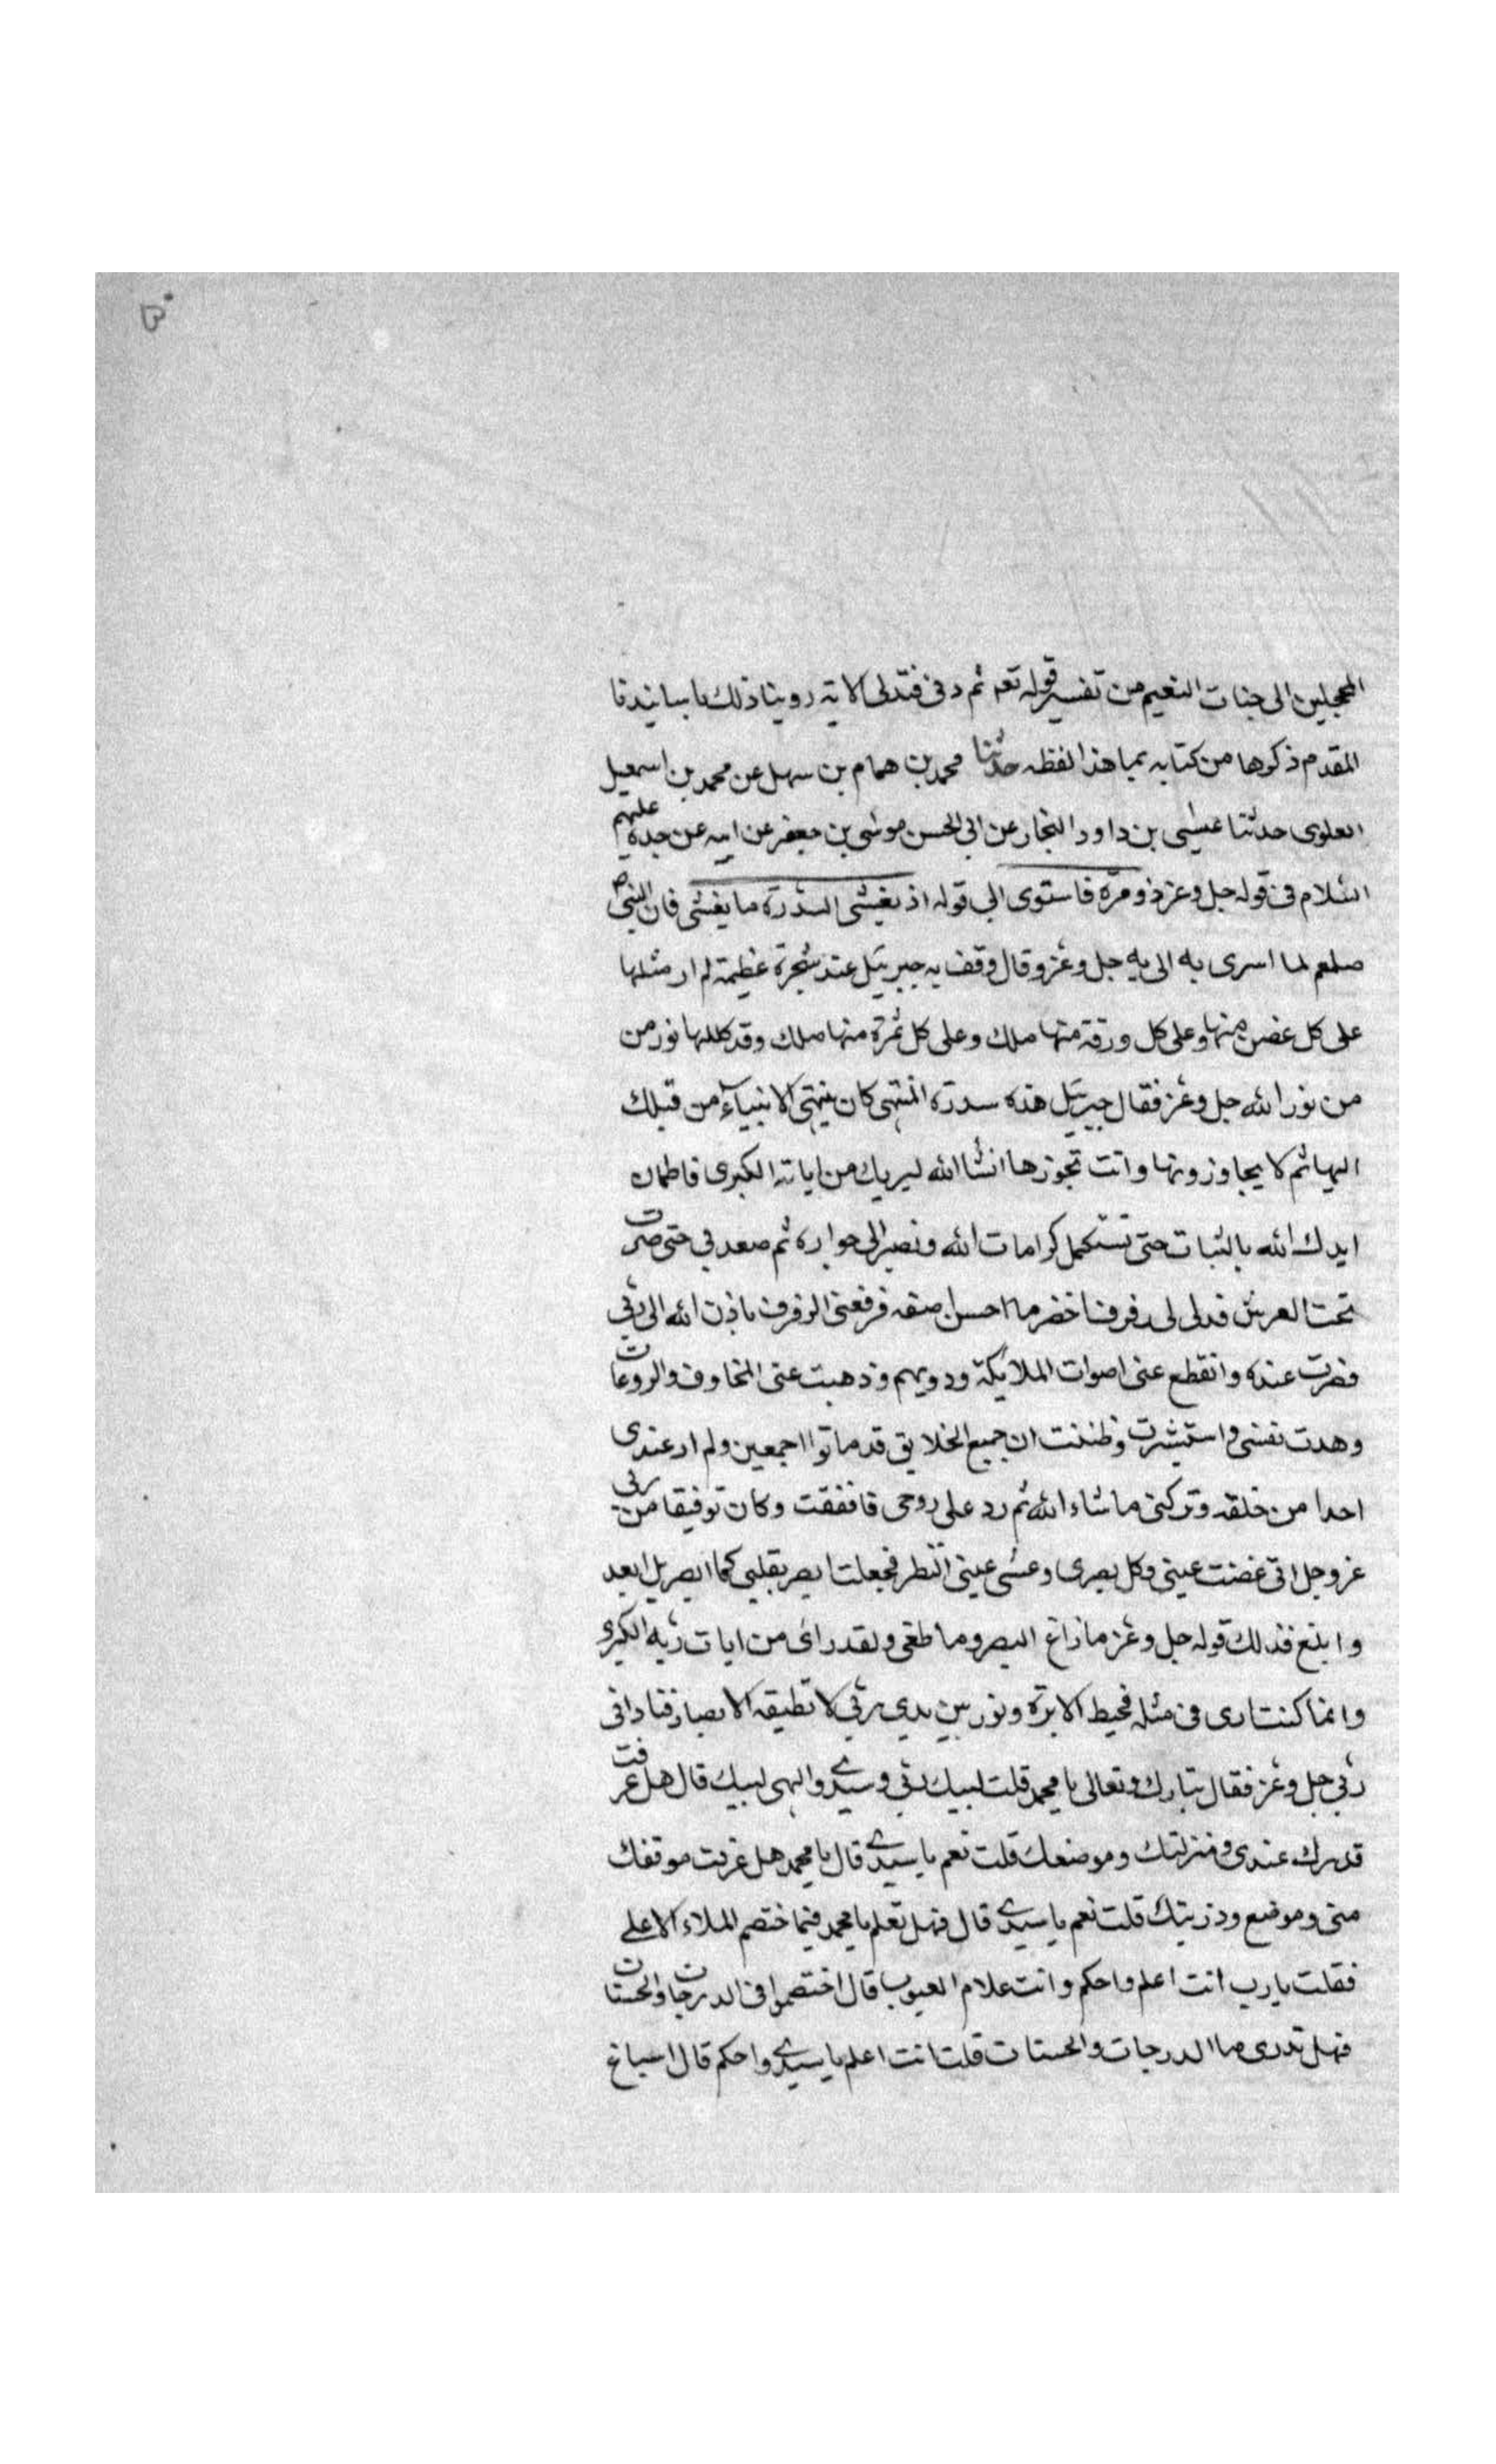 المحجلين الى جنات النعيم من تفسير قوله تعه ثم دنى فتدلى الاية روينا ذلك باسانيدنا
المقدم ذكرها من كتابه بما هذا لفظه حدثنا محمد بن همام بن سهل عن محمد بن اسمعيل
العلوى حدثنا عيسى بن داود النجار عن ابى الحسن موسى بن جعفر عن ابيه عن جده عليهم
السلام فى قوله جل وعز ذو مرة فاستوى الى قوله اذ يغشى السدرة ما يغشى فان النبى
صلعم لما اسرى به الى به جل وعز وقال وقف به جبرئيل عند شجرة عظيمة لم ار مثلها
على كل غصن منها وعلى كل ورقة منها ملك وعلى كل ثمرة منها ملك وقد كللها نور من
من نور الله جل وعز فقال جبرئيل هذه سدرة المنتهى كان ينتهى الانبياء من قبلك
اليها ثم لا يجاوزونها وانت تجوزها انشا الله ليريك من اياته الكبرى فاطمان
ايدك الله بالثبات حتى تستكمل كرامات الله وتصير الى جواره ثم صعد بى حتى صرت
تحت العرش فدلى لى رفرف اخضر ما احسن اصفه فرفعنى الرفرف باذن الله الى ربى
فصرت عنده وانقطع عنى اصوات الملائكة ودويهم وذهبت عنى المخاوف والروعات
وهدت نفسى واستبشرت وظننت ان جميع الخلايق قد ماتوا اجمعين ولم ار عندى
احدا من خلقه وتركنى ما شاء الله ثم رد على روحى فافقت وكان توفيقا من ربى
عز وجل انى غمضت عينى وكل بصرى وعشى عينى النظر فجعلت ابصر بقلبى كما ابصر بل ابعد
وابلغ فذلك قوله جل وعز ما زاغ البصر وما طغى ولقد راى من ايات ربه الكبرى
وانما كنت ارى فى مثله فخيط الابرة ونور بين يدى ربى لا تطيقه الابصار فنادانى
ربى جل وعز فقال تبارك وتعالى يا محمد قلت لبيك ربى وسيدى والهى لبيك قال هل عرفت
قدرك عندى ومنزلتك وموضعك قلت نعم يا سيدى قال يا محمد هل عرفت موقفك
منى وموضع وذريتك قلت نعم يا سيدى قال فهل تعلم يا محمد فيما ختصم الملاء الاعلى
فقلت يا رب انت اعلم واحكم وانت علام الغيوب قال اختصموا فى الدرجات والحسنات
فهل تدرى ما الدرجات والحسنات قلت انت اعلم يا سيدى واحكم قال اسباغ